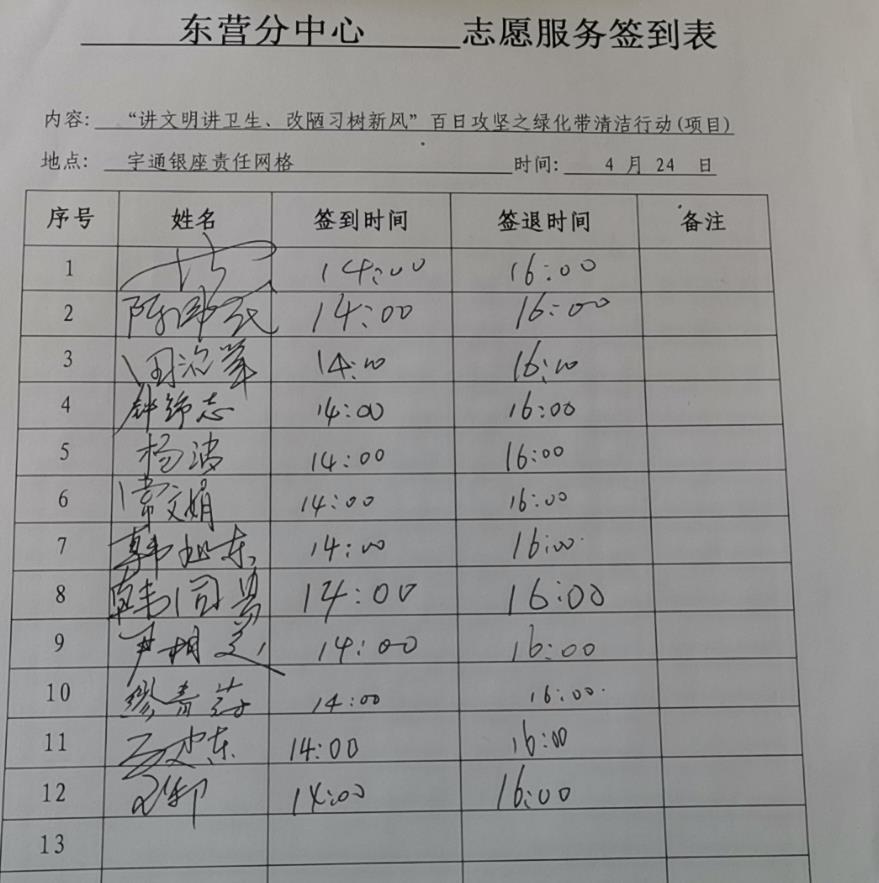 东营分中心 志愿服务签到表
内容: “讲文明讲卫生、改陋习树新风”百日攻坚之绿化带清洁行动(项目)
地点: 宇通银座责任网格 时间: 4 月 24 日
序号 姓名 签到时间 签退时间 备注
1 14:00 16:00
2 14:00 16:00
3 14:00 16:00
4 14:00 16:00
5 杨涛 14:00 16:00
6 常文娟 14:00 16:00
7 韩旭东 14:00 16:00
8 14:00 16:00
9 14:00 16:00
10 14:00 16:00
11 14:00 16:00
12 14:00 16:00
13